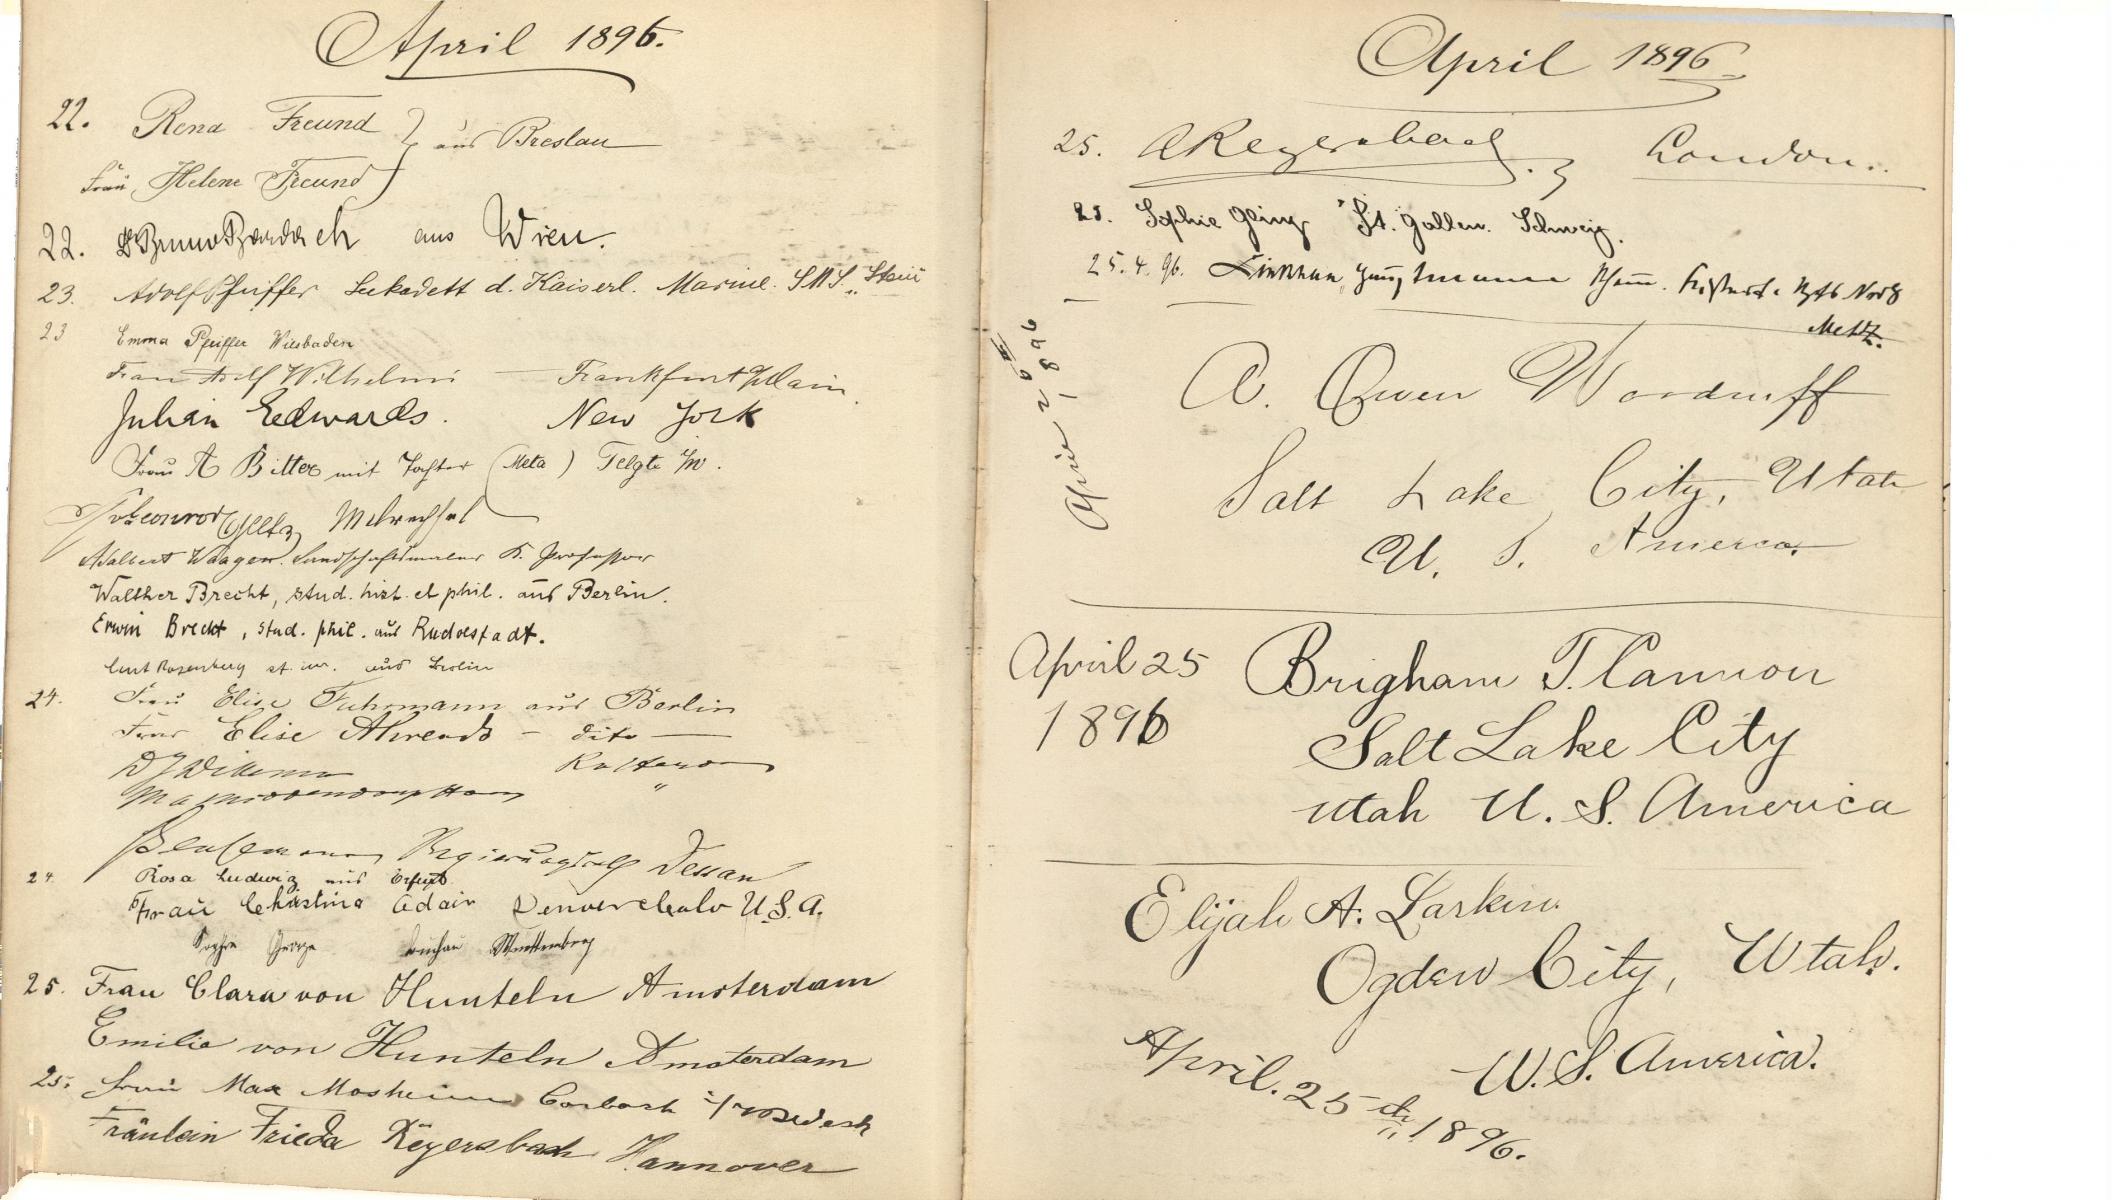 April 1896.
22. Rena Freund } aus Breslau
Frau Helene Freund
22. Bruno Bardach aus Wien.
23. Adolf Pfeiffer Seekadett d. Kaiserl. Marine. S.M.S. „Stein“
23 Emma Pfeiffer Wiesbaden
Frau Adolf Wilhelmi — Frankfurt a/Main.
Julian Edwards. New York
Frau A Bitter mit Tochter (Meta) Telgte i/W.
Adalbert Waagen. Landschaftsmaler K. Professor
Walther Brecht, stud. hist. et phil. aus Berlin.
Erwin Brecht, stud. phil. aus Rudolstadt.
Curt Rosenberg st. jur. aus Berlin
24. Frau Elise Fuhrmann aus Berlin
Frau Elise Ahrends – dito —
"
Regierungsrath Dessau
24. Rosa Ludwig aus Erfurt
Frau Christina Adair Denver Colo U.S.A.
Sophie George Buchau Württemberg
25. Frau Clara von Hunteln Amsterdam
Emilie von Hunteln Amsterdam
25. Frau Max Mosheim Corbach i/Waldeck
Fräulein Frieda Keyersbach Hannover
April 1896
25. A Keyersbach. London.
25. Sophie St. Gallen. Schweiz.
25.4.96. No 8
Metz.
April 25th 1896
A. Owen Woodruff
Salt Lake City, Utah
U. S. America.
April 25 Brigham T. Cannon
1896 Salt Lake City
Utah U. S. America
Elijah A. Larkin.
Ogden City, Utah.
U. S. America.
April. 25th 1896.